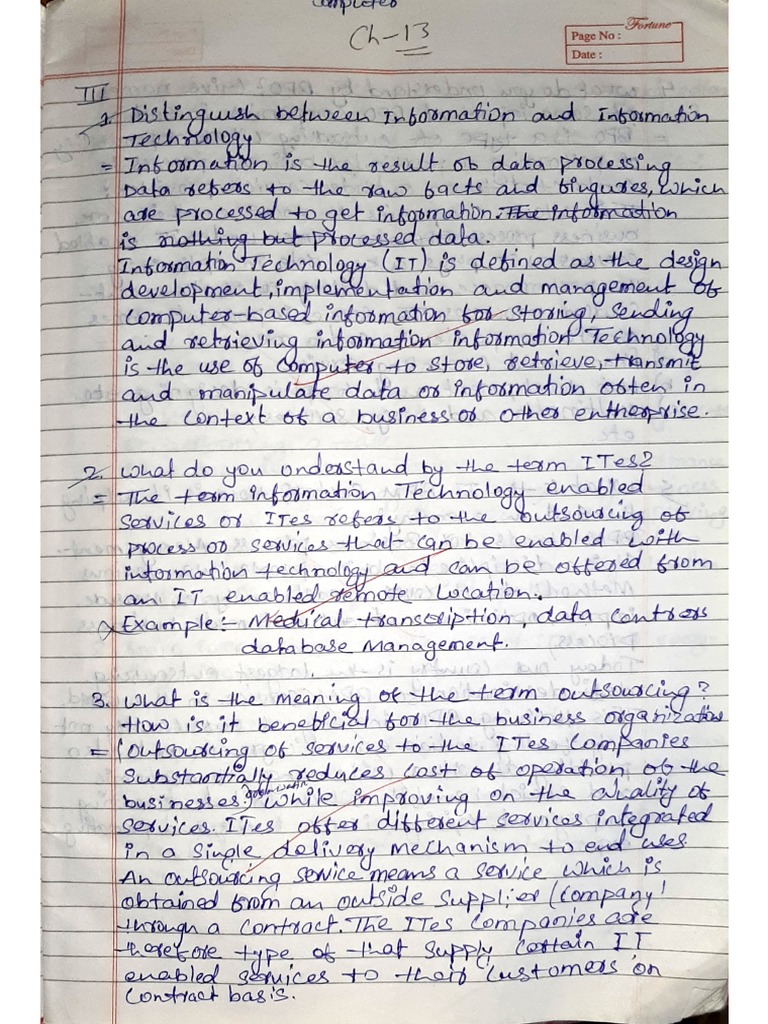 completed
Ch-13
Fortune
Page No :
Date :
III
1. Distinguish between Information and Information
Technology
= Information is the result of data processing
Data refers to the raw facts and fingures, which
are processed to get information. The information
is nothing but processed data.
Information Technology (IT) is defined as the design
development, implementation and management of
computer-based information for storing, sending
and retrieving information information Technology
is the use of computer to store, retrieve, transmit
and manipulate data or information often in
the context of a business or other entherprise.
2. What do you understand by the term ITes?
= The term information Technology enabled
services or ITes refers to the outsourcing of
process or services that can be enabled with
information technology and can be offered from
an IT enabled remote location.
Example:- Medical transcription, data centers
database Management.
3. What is the meaning of the term outsourcing?
How is it beneficial for the business organization
= (Outsourcing of services to the ITes companies
Substantially reduces cost of operation of the
businesses while improving on the quality of
services. ITes offer different services integrated
in a single delivery mechanism to end uses.
An outsourcing service means a service which is
obtained from an outside supplier (company)
through a contract. The ITes companies are
therefore type of that supply certain IT
enabled services to their customers on
contract basis.